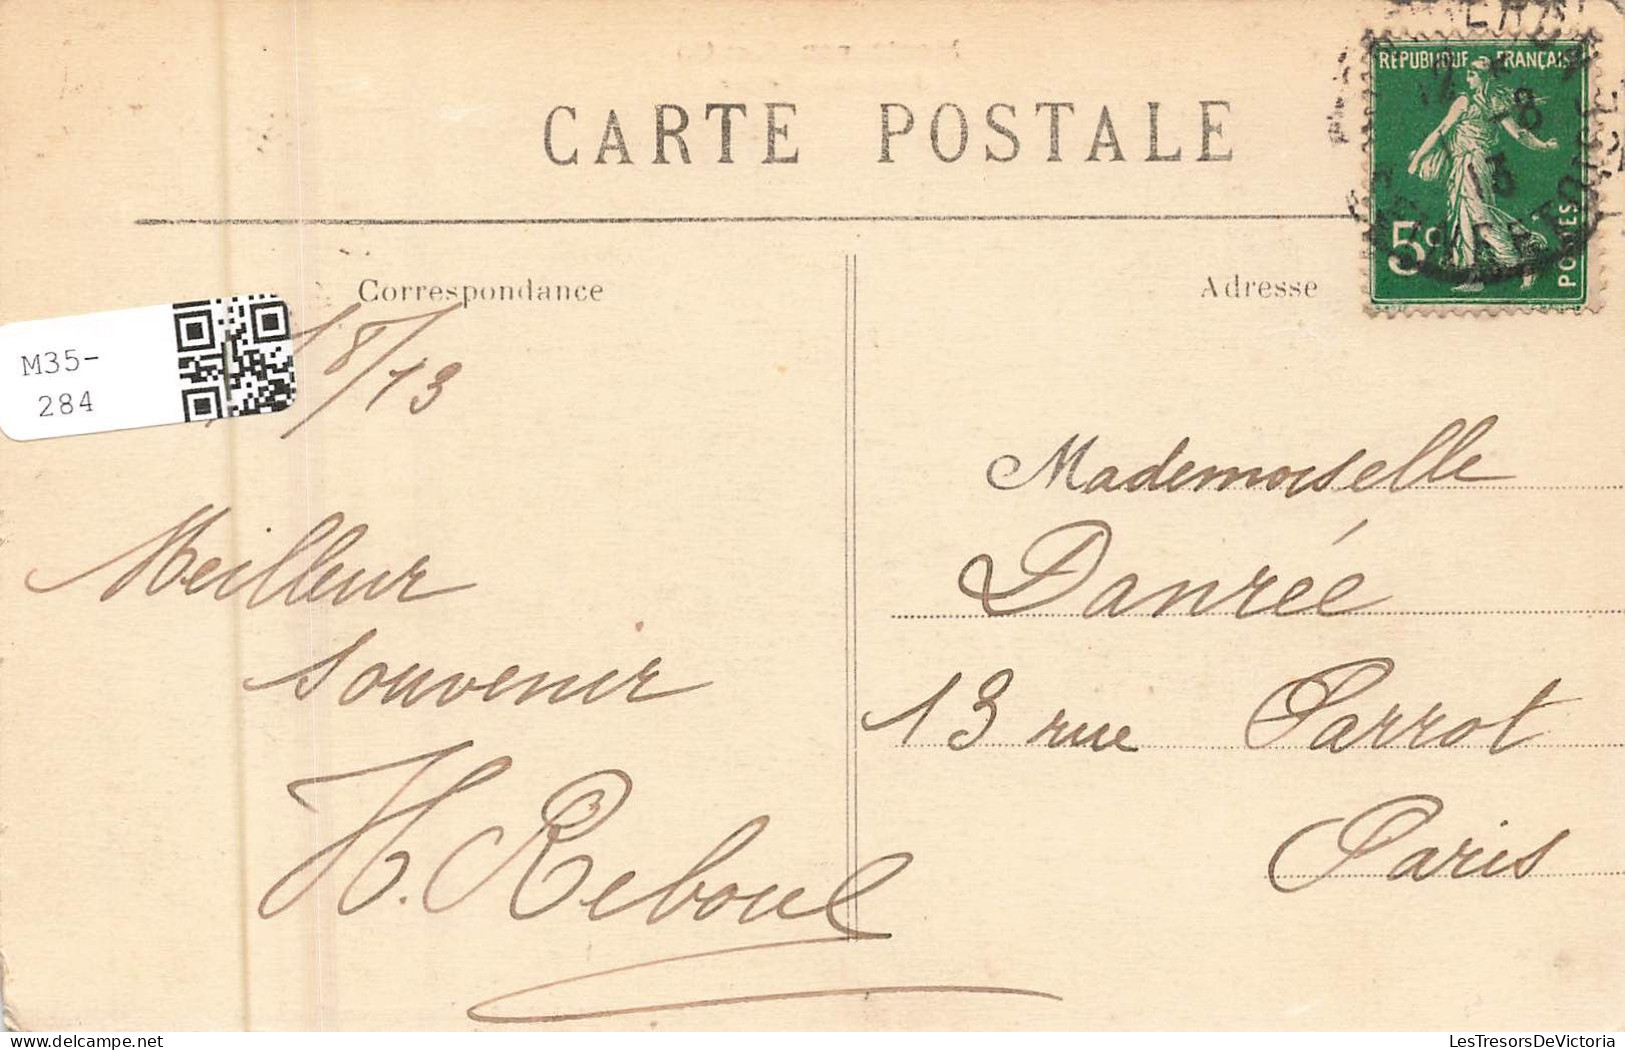 CARTE POSTALE
REPUBLIQUE FRANÇAISE
12 -8
13
5c
POSTES
Correspondance
Adresse
M35-
284
8/13
Mademoiselle
Danrée
13 rue Parrot
Paris
Meilleur
souvenir
H. Reboul
LesTresorsDeVictoria